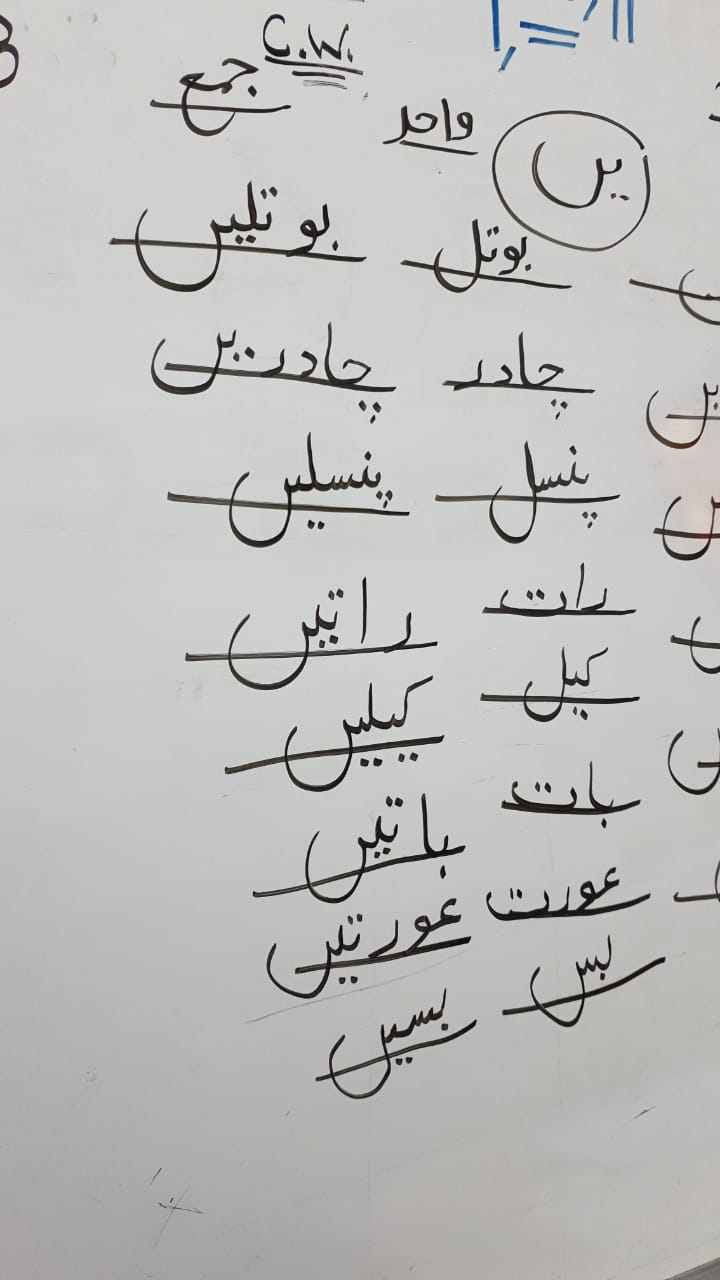 C.W.
واحد جمع
یں
بوتل بوتلیں
چادر چادریں
پنسل پنسلیں
رات راتیں
کیل کیلیں
بات باتیں
عورت عورتیں
بس بسیں